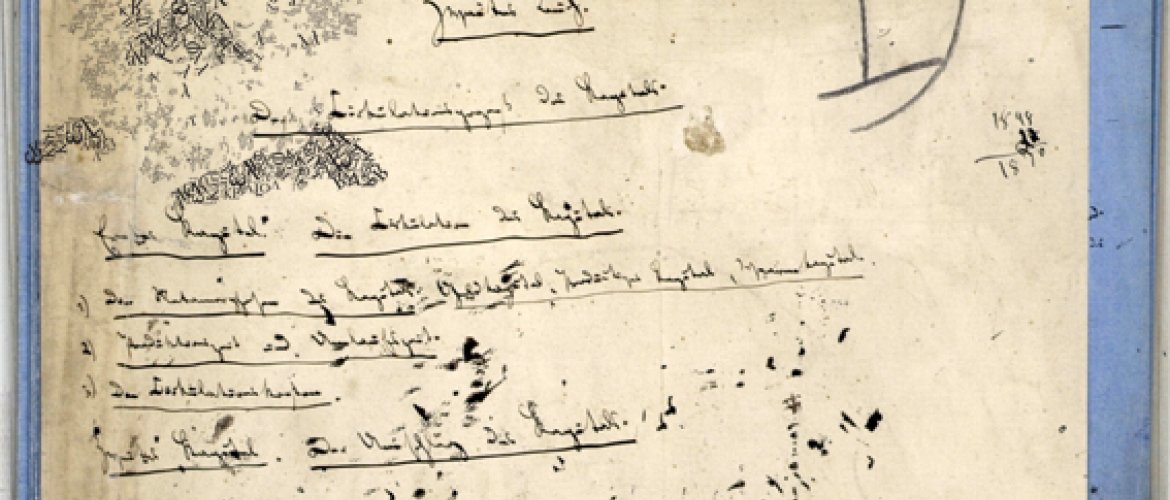 Zweites Buch.
Der Cirkulationsprozess des Kapitals.
Erstes Kapitel. Die Cirkulation des Kapitals.
1) Die Metamorphosen des Kapitals: Geldkapital, Produktives Kapital, Waarenkapital.
2) Produktionszeit und Umlaufszeit.
3) Die Cirkulationskosten.
Zweites Kapitel. Der Umschlag des Kapitals.